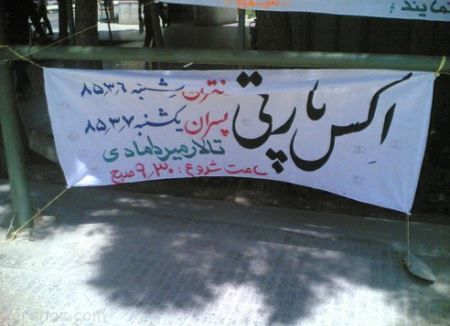 نمایند
اکس پارتی
دختران شنبه ۸۵,۳,۶
پسران یکشنبه ۸۵,۳,۷
تالار میردامادی
ساعت شروع : ۹,۳۰ صبح